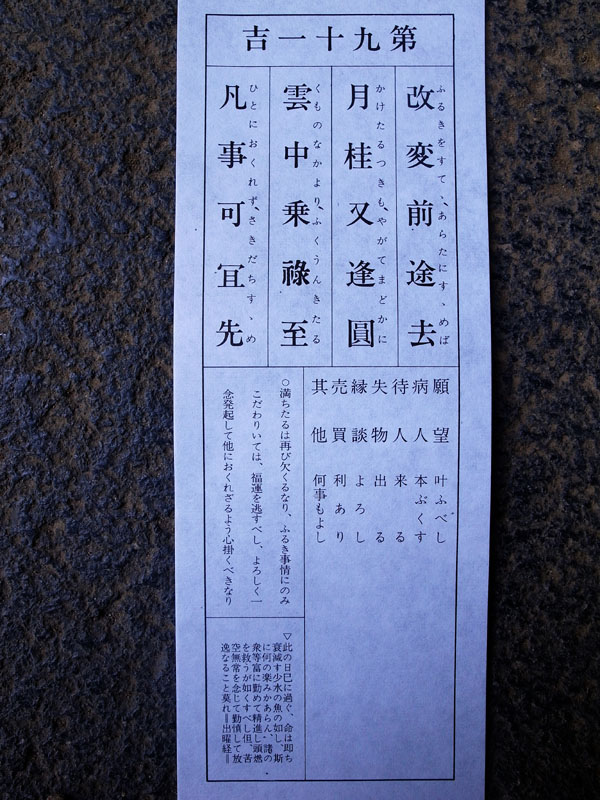 第九十一吉
改変前途去
ふるきをすて、あらたにすゝめば
月桂又逢圓
かけたるつきも、やがてまどかに
雲中乗祿至
くものなかより、ふくうんきたる
凡事可宜先
ひとにおくれず、さきだちすゝめ
願望 叶ふべし
病人 本ぶくす
待人 来る
失物 出る
縁談 よろし
売買 利あり
其他 何事もよし
○満ちたるは再び欠くるなり、ふるき事情にのみ
こだわりいては、福運を逃すべし、よろしく一
念発起して他におくれざるよう心掛くべきなり
▽此の日已に過ぐ、命は即ち
衰滅す少水の魚の如し、斯
に何の楽みかあらん、諸の
衆等富に勤めて精進し頭燃
を救うが如くすべし但、苦
空無常を念じて勤慎して放
逸なること莫れ＝出曜経＝